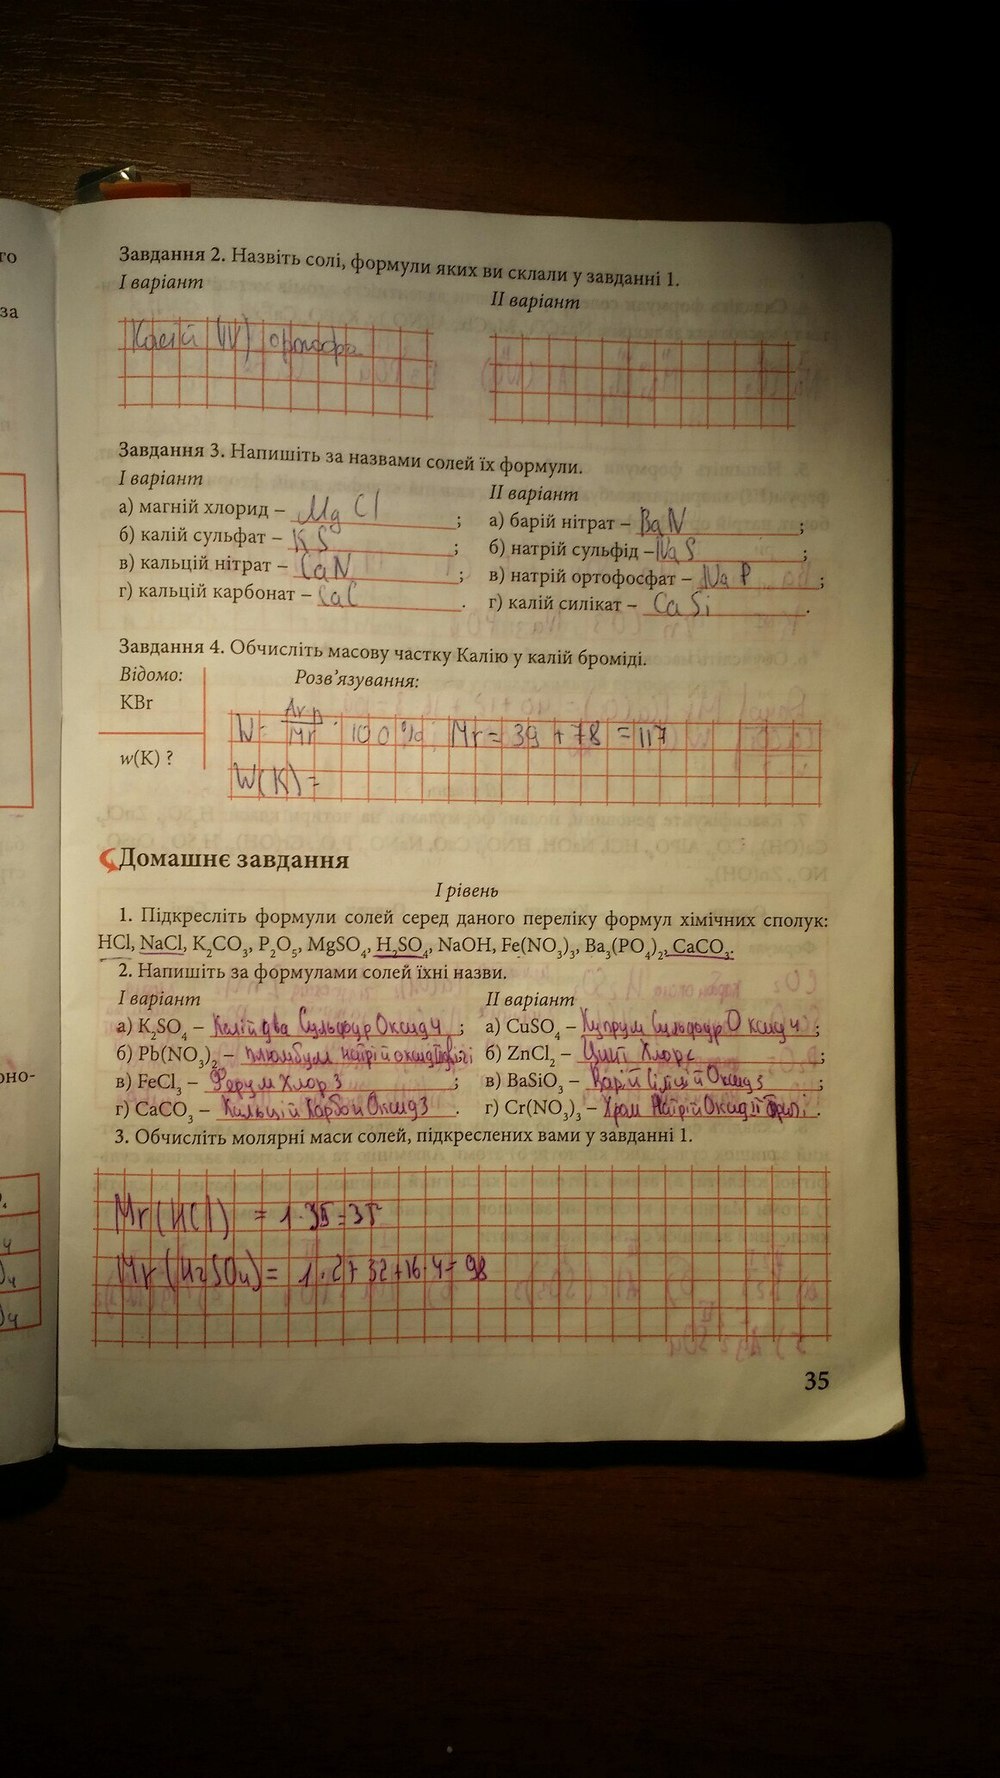 го
за
рно-
Завдання 2. Назвіть солі, формули яких ви склали у завданні 1.
I варіант
II варіант
Калій (IV) ортофо
Завдання 3. Напишіть за назвами солей їх формули.
I варіант
а) магній хлорид – MgCl ;
б) калій сульфат – KS ;
в) кальцій нітрат – CaN ;
г) кальцій карбонат – CaC .
II варіант
а) барій нітрат – BaN ;
б) натрій сульфід – NaS ;
в) натрій ортофосфат – NaP ;
г) калій силікат – CaSi .
Завдання 4. Обчисліть масову частку Калію у калій броміді.
Відомо:
KBr
w(K) ?
Розв’язування:
W = Ar·n / Mr · 100% Mr = 39 + 78 = 117
W(K) =
Домашнє завдання
I рівень
1. Підкресліть формули солей серед даного переліку формул хімічних сполук:
HCl, NaCl, K₂CO₃, P₂O₅, MgSO₄, H₂SO₄, NaOH, Fe(NO₃)₃, Ba₃(PO₄)₂, CaCO₃.
2. Напишіть за формулами солей їхні назви.
I варіант
а) K₂SO₄ – Калій два Сульфур Оксид 4 ;
б) Pb(NO₃)₂ – плюмбум натрій оксид
в) FeCl₃ – Ферум Хлор 3 ;
г) CaCO₃ – Кальцій Карбон Оксид 3 .
II варіант
а) CuSO₄ – Купрум Сульфур Оксид 4 ;
б) ZnCl₂ – Цинк Хлор ;
в) BaSiO₃ – Барій Оксид 3 ;
г) Cr(NO₃)₃ – Хром Натрій Оксид .
3. Обчисліть молярні маси солей, підкреслених вами у завданні 1.
Mr(HCl) = 1·35=35
Mr(H₂SO₄) = 1·2+32+16·4=98
35